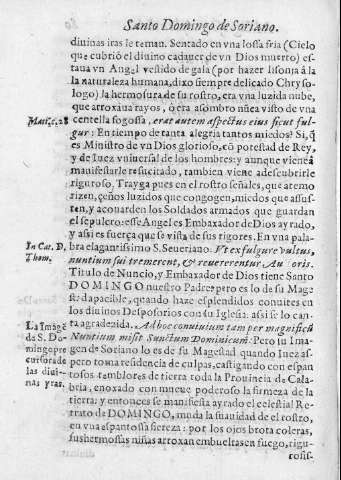 Santo Domingo de Soriano.
diuinas iras le teman. Sentado en vna lossa fria (Cielo
que cubriò el diuino cadauer de vn Dios muerto) es-
taua vn Angel vestido de gala (por hazer lisonja à la
la naturaleza humana, dixo siempre delicado Chryso-
logo) la hermosura de su rostro, era vna luzida nube,
que arroxaua rayos, ò era asombro nũca visto de vna
Matt. c. 28
centella fogossa, erat autem aspectus eius sicut ful-
gur: En tiempo de tanta alegria tantos miedos? Si, q̃
es Ministro de vn Dios glorioso, cõ potestad de Rey,
y de Iuez vniuersal de los hombres: y aunque viene à
manifestarle resucitado, tambien viene à descubrirle
riguroso, Trayga pues en el rostro señales, que atemo
rizen, ceños luzidos que congogen, miedos que assus-
ten, y acouarden los Soldados armados que guardan
el sepulcro: esse Angel es Embaxador de Dios ayrado,
y assi es fuerça que se vista de sus rigores. En vna pala-
In Cat. D.
Thom.
bra elagantissimo S. Seueriano. Vt ex fulgure vultus,
nuntium sui tremerent, & reuererentur Autoris.
Titulo de Nuncio, y Embaxador de Dios tiene Santo
DOMINGO nuestro Padre; pero es lo de su Mage
stad apacible, quando haze esplendidos conuites en
los diuinos Desposorios con su Iglesia: assi se lo can-
ta agradezida. Ad hoc conuiuium tam per magnificũ
La Imagẽ
de S. Do-
mingo pre
cursora de
las diui-
nas yras.
Nuntium misit Sanctum Dominicum. Pero su Ima
gen de Soriano lo es de su Magestad quando Iuez as-
pero toma residencia de culpas, castigando con espan
tosos temblores de tierra toda la Prouincia de Cala-
bria, enoxado con mueue poderoso la firmeza de la
tierra: y entonces se manifiesta ayrado el celestial Re-
trato de DOMINGO, muda la suauidad de el rostro,
en vna espantossa fiereza: por los ojos brota coleras,
sus hermossas niñas arroxan embueltas en fuego, rigu-
rosis-